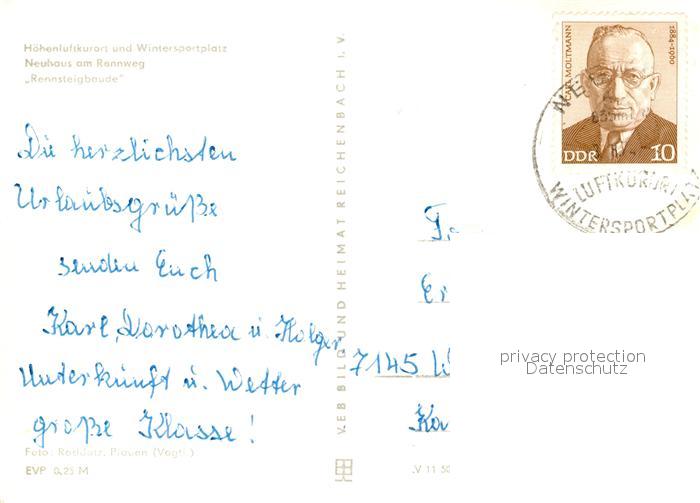 Höhenluftkurort und Wintersportplatz
Neuhaus am Rennweg
„Rennsteigbaude"
Die herzlichsten
Urlaubsgrüße
senden Euch
Karl, Dorothea u. Holger
Unterkunft u. Wetter
große Klasse!
Foto: Plauen (Vogtl.)
EVP 0,25 M
VEB BILD UND HEIMAT REICHENBACH I. V.
V 11 50
CARL MOLTMANN
1884-1960
DDR 10
LUFTKURORT
WINTERSPORTPLATZ
7145
privacy protection
Datenschutz